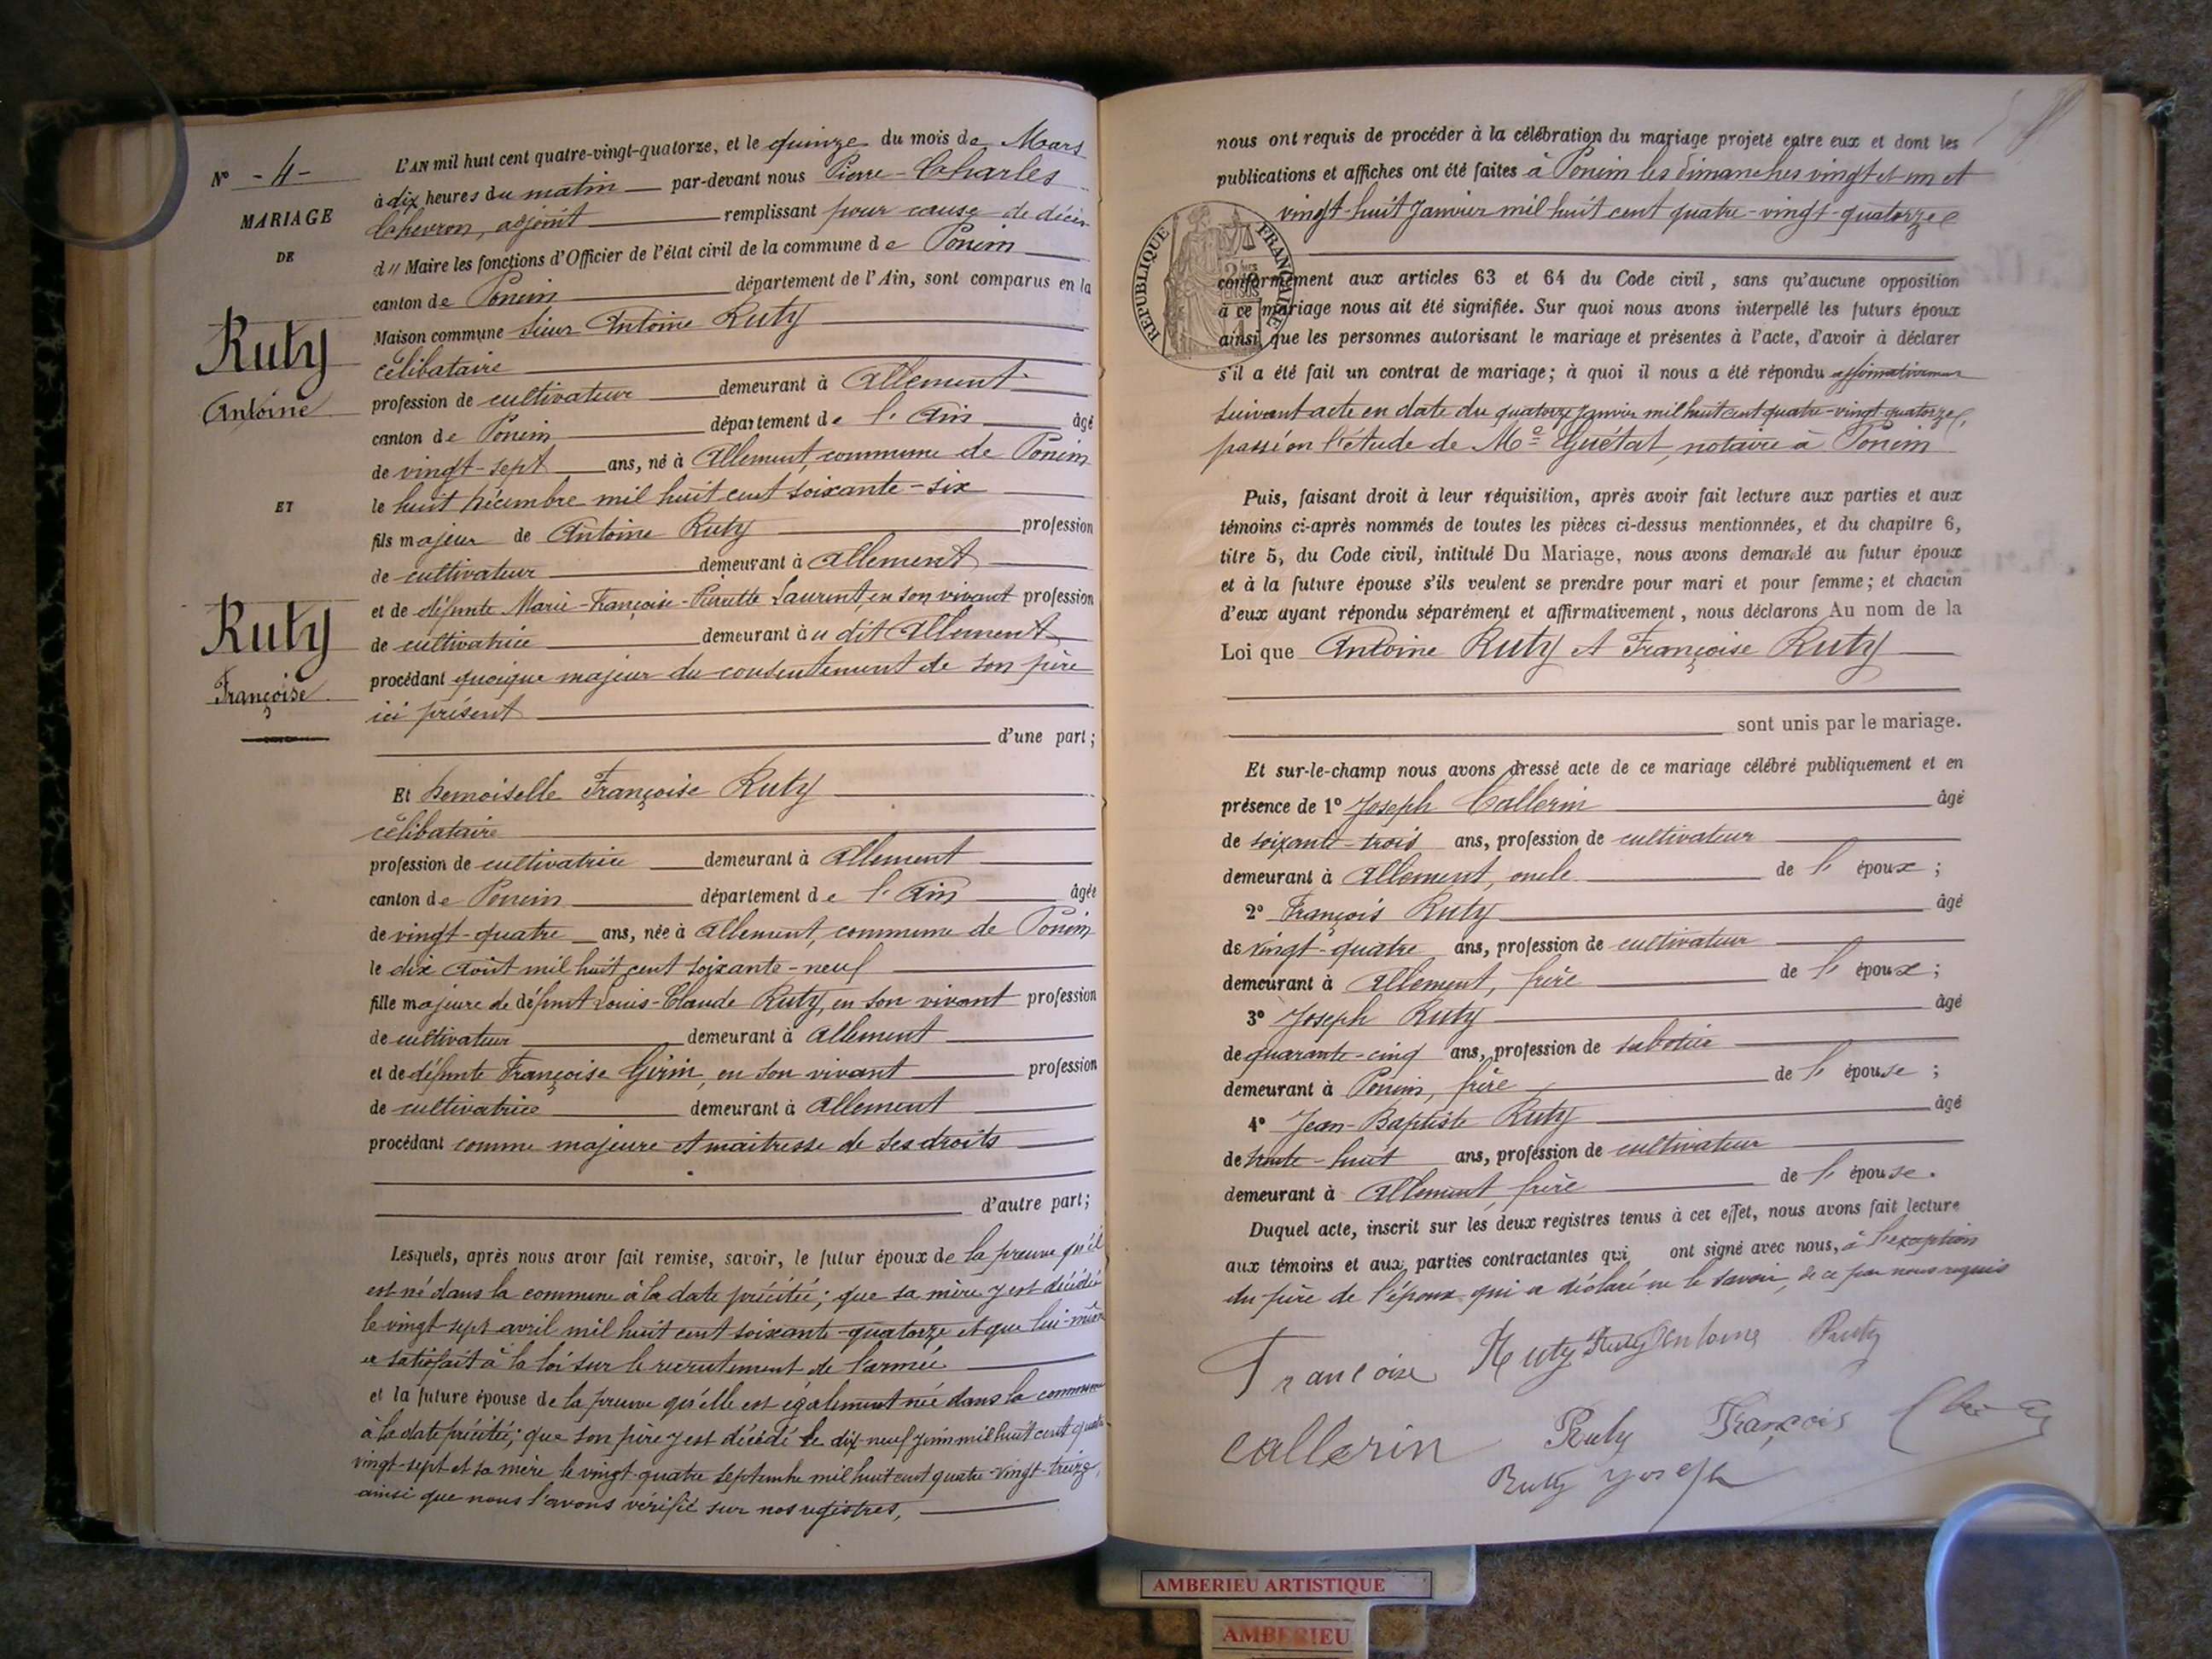 N° - 4 -
MARIAGE
DE
Ruty
Antoine
ET
Ruty
Françoise
L'AN mil huit cent quatre-vingt-quatorze, et le quinze du mois de Mars
à dix heures du matin par-devant nous Pierre-Charles
Chevron, adjoint remplissant pour cause de décès
du Maire les fonctions d'Officier de l'état civil de la commune de Poncin
canton de Poncin département de l'Ain, sont comparus en la
Maison commune Sieur Antoine Ruty
célibataire
profession de cultivateur demeurant à Allement
canton de Poncin département de l'Ain âgé
de vingt-sept ans, né à Allement, commune de Poncin
le huit Décembre mil huit cent soixante-six
fils majeur de Antoine Ruty profession
de cultivateur demeurant à Allement
et de défunte Marie-Françoise-Pierrette Laurent, en son vivant profession
de cultivatrice demeurant à u dit Allement
procédant quoique majeur du consentement de son père
ici présent
d'une part;
Et Demoiselle Françoise Ruty
célibataire
profession de cultivatrice demeurant à Allement
canton de Poncin département de l'Ain âgée
de vingt-quatre ans, née à Allement, commune de Poncin
le dix Août mil huit cent soixante-neuf
fille majeure de défunt Louis-Claude Ruty, en son vivant profession
de cultivateur demeurant à Allement
et de défunte Françoise Girin, en son vivant profession
de cultivatrice demeurant à Allement
procédant comme majeure et maitresse de ses droits
d'autre part;
Lesquels, après nous avoir fait remise, savoir, le futur époux de la preuve qu'il
est né dans la commune à la date précitée; que sa mère y est décédée
le vingt-sept avril mil huit cent soixante-quatorze et que lui-même
a satisfait à la loi sur le recrutement de l'armée
et la future épouse de la preuve qu'elle est également née dans la commune
à la date précitée; que son père y est décédé le dix-neuf juin mil huit cent quatre-
vingt-sept et sa mère le vingt-quatre septembre mil huit cent quatre-vingt-treize,
ainsi que nous l'avons vérifié sur nos registres,
nous ont requis de procéder à la célébration du mariage projeté entre eux et dont les
publications et affiches ont été faites à Poncin les dimanches vingt et un et
vingt-huit Janvier mil huit cent quatre-vingt-quatorze
RÉPUBLIQUE FRANÇAISE
conformément aux articles 63 et 64 du Code civil, sans qu'aucune opposition
à ce mariage nous ait été signifiée. Sur quoi nous avons interpellé les futurs époux
ainsi que les personnes autorisant le mariage et présentes à l'acte, d'avoir à déclarer
s'il a été fait un contrat de mariage; à quoi il nous a été répondu affirmativement
suivant acte en date du quatorze Janvier mil huit cent quatre-vingt-quatorze,
passé en l'étude de Me Guétat, notaire à Poncin
Puis, faisant droit à leur réquisition, après avoir fait lecture aux parties et aux
témoins ci-après nommés de toutes les pièces ci-dessus mentionnées, et du chapitre 6,
titre 5, du Code civil, intitulé Du Mariage, nous avons demandé au futur époux
et à la future épouse s'ils veulent se prendre pour mari et pour femme; et chacun
d'eux ayant répondu séparément et affirmativement, nous déclarons Au nom de la
Loi que Antoine Ruty et Françoise Ruty
sont unis par le mariage.
Et sur-le-champ nous avons dressé acte de ce mariage célébré publiquement et en
présence de 1° Joseph Callerin âgé
de soixante-trois ans, profession de cultivateur
demeurant à Allement, oncle de l'époux;
2° François Ruty âgé
de vingt-quatre ans, profession de cultivateur
demeurant à Allement, frère de l'époux;
3° Joseph Ruty âgé
de quarante-cinq ans, profession de sabotier
demeurant à Poncin, frère de l'épouse;
4° Jean-Baptiste Ruty âgé
de trente-huit ans, profession de cultivateur
demeurant à Allement, frère de l'épouse.
Duquel acte, inscrit sur les deux registres tenus à cet effet, nous avons fait lecture
aux témoins et aux parties contractantes qui ont signé avec nous, à l'exception
du père de l'époux qui a déclaré ne le savoir, de ce par nous requis
Françoise Ruty Ruty Antoine Ruty
Callerin Ruty François
Ruty Joseph
AMBERIEU ARTISTIQUE
AMBERIEU